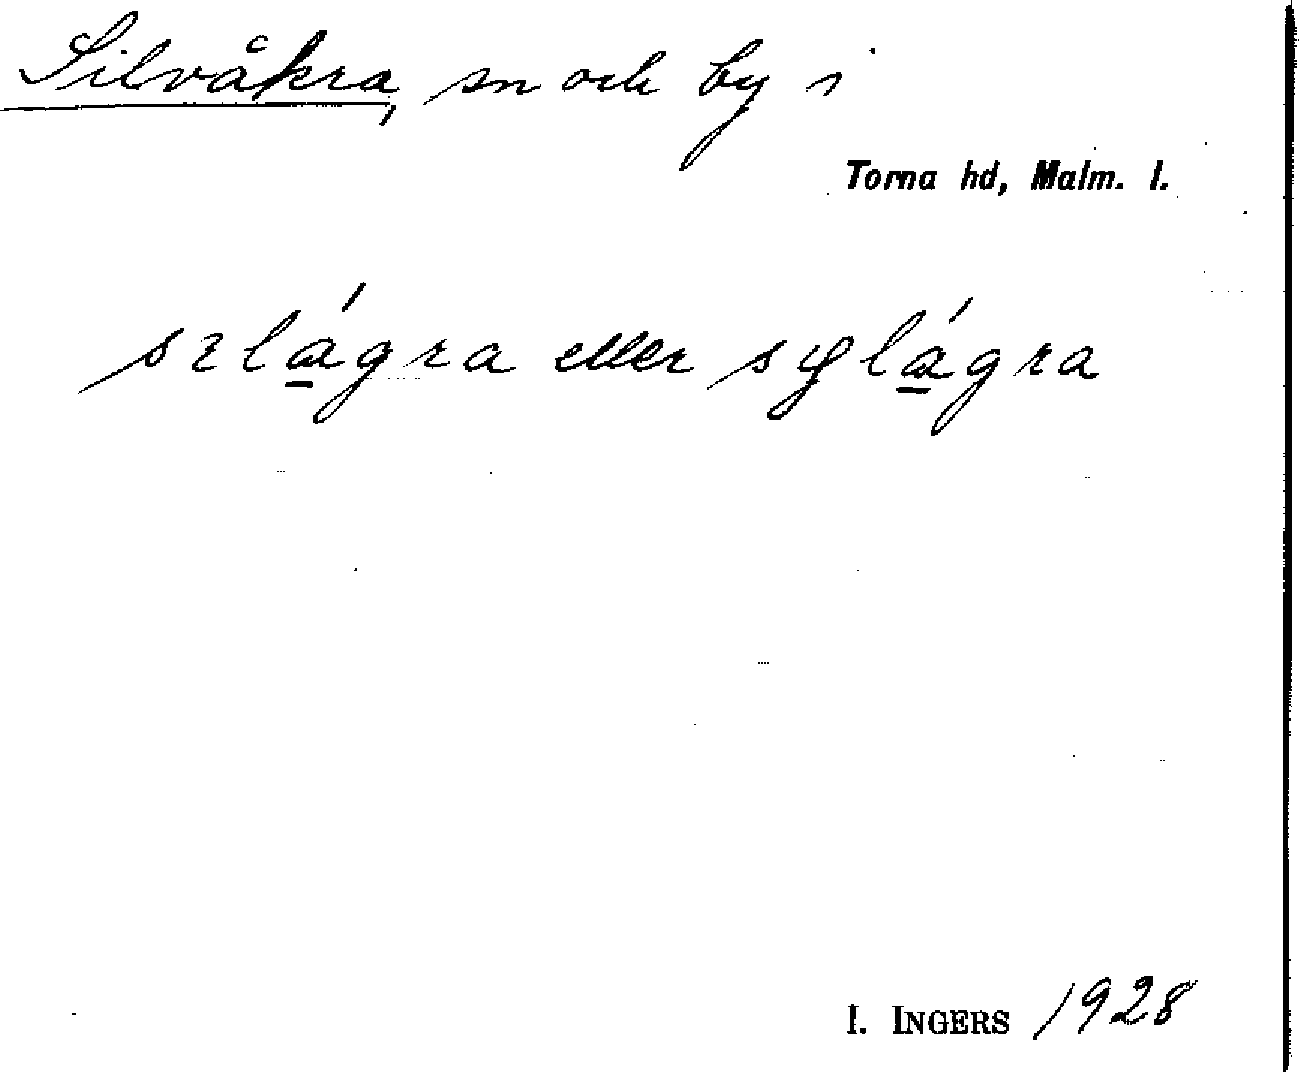 Silvåkra, sn och by i
Torna hd, Malm. l.
sɪlágra eller sylágra
I. INGERS 1928